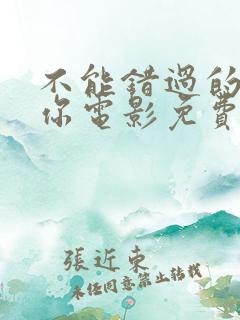 不能錯過的
你電影免費
張近東
未經同意禁止轉載